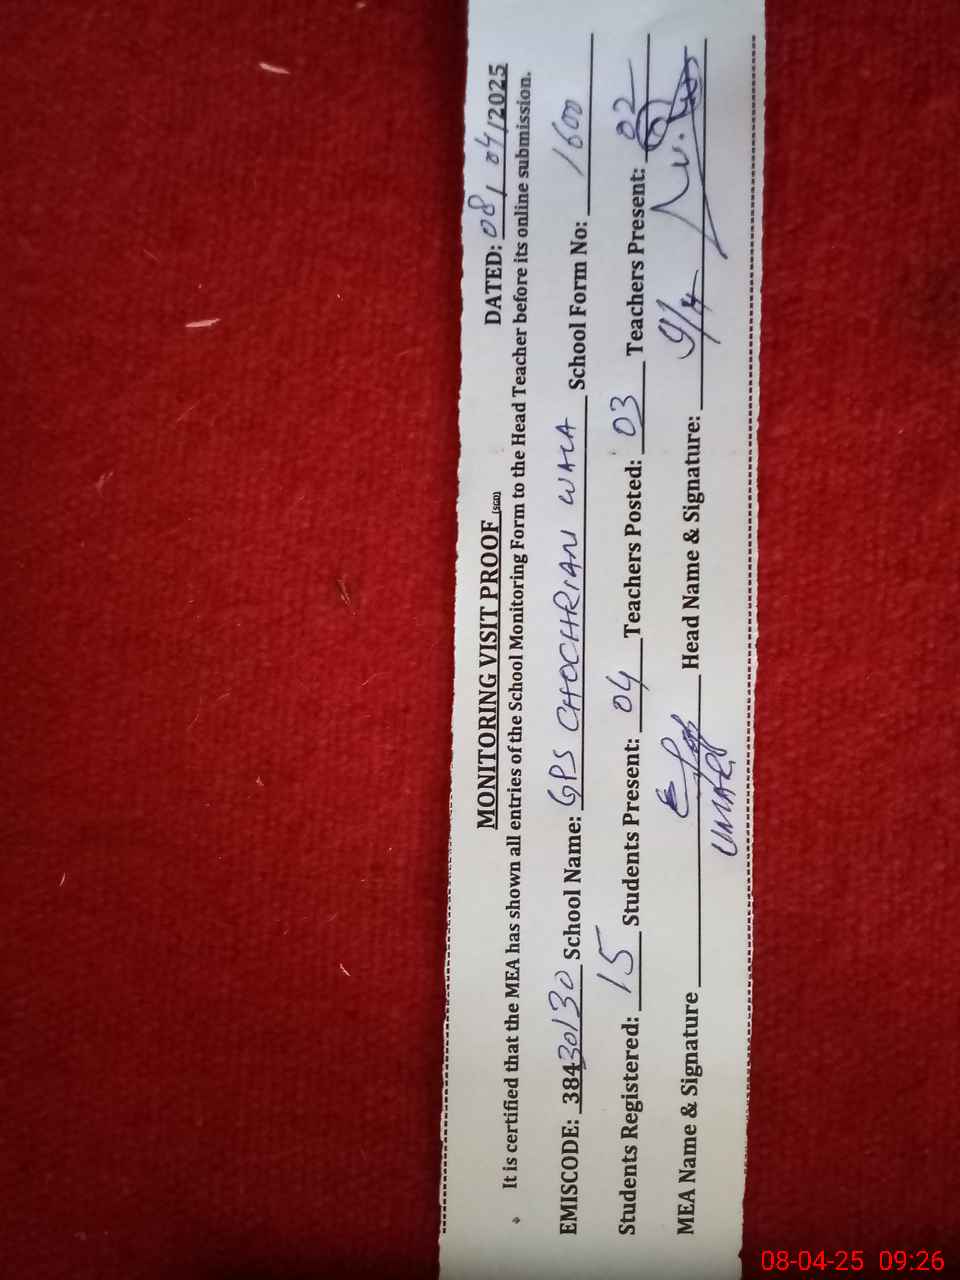 MONITORING VISIT PROOF (SGD)
DATED: 08/04/2025
It is certified that the MEA has shown all entries of the School Monitoring Form to the Head Teacher before its online submission.
EMISCODE: 38430130 School Name: GPS CHOCHRIAN WALA School Form No: 1600
Students Registered: 15 Students Present: 04 Teachers Posted: 03 Teachers Present: 02
MEA Name & Signature Head Name & Signature:
UMAR
08-04-25 09:26